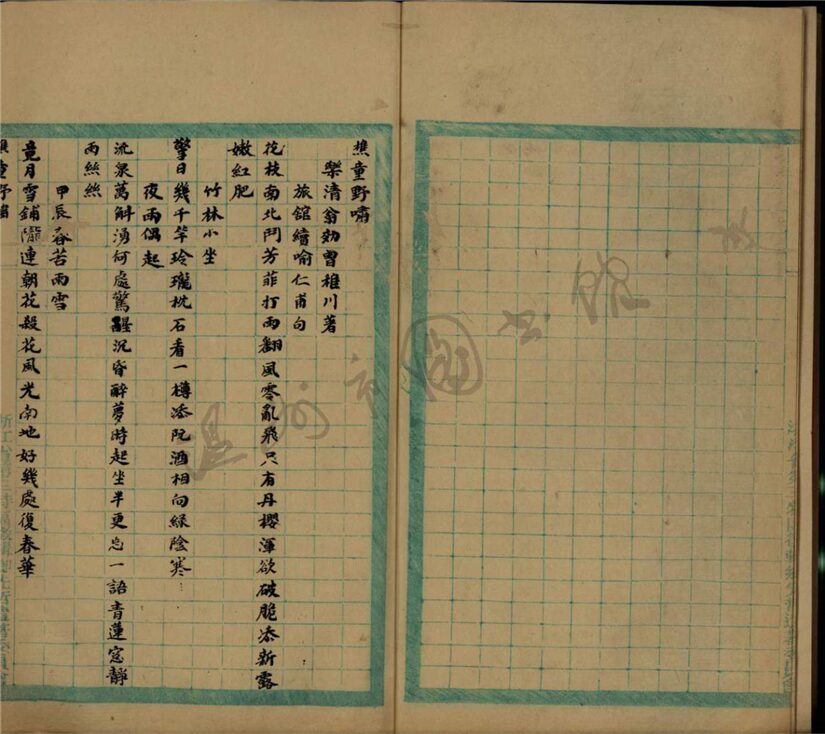 樵童野嘯
樂清翁効曾椎川著
旅館續喻仁甫句
花枝南北鬥芳菲打雨翻風零亂飛只有丹櫻渾欲破脆添新露
嫩紅肥
竹林小坐
擎日幾千竿玲瓏枕石看一樽添阮酒相向綠陰寒
夜雨偶起
流泉萬斛湧何處驚醒沉昏醉夢時起坐半更忘一語青蓮窓靜
雨絲絲
甲辰春苦雨雪
竟月雪鋪隴連朝花殺花風光南地好幾處復春華
樵童野嘯
溫州市圖書館